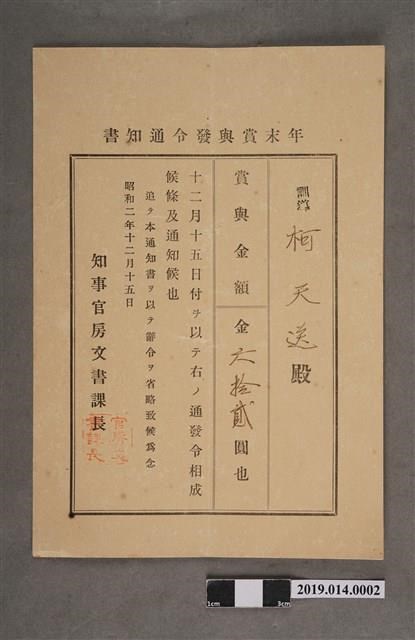 年末賞與發令通知書
訓導 柯天送殿
賞與金額 金六拾貳圓也
十二月十五日付ヲ以テ右ノ通發令相成
候條及通知候也
追テ本通知書ヲ以テ辭令ヲ省略致候爲念
昭和二年十二月十五日
知事官房文書課長
1cm 3cm
2019.014.0002